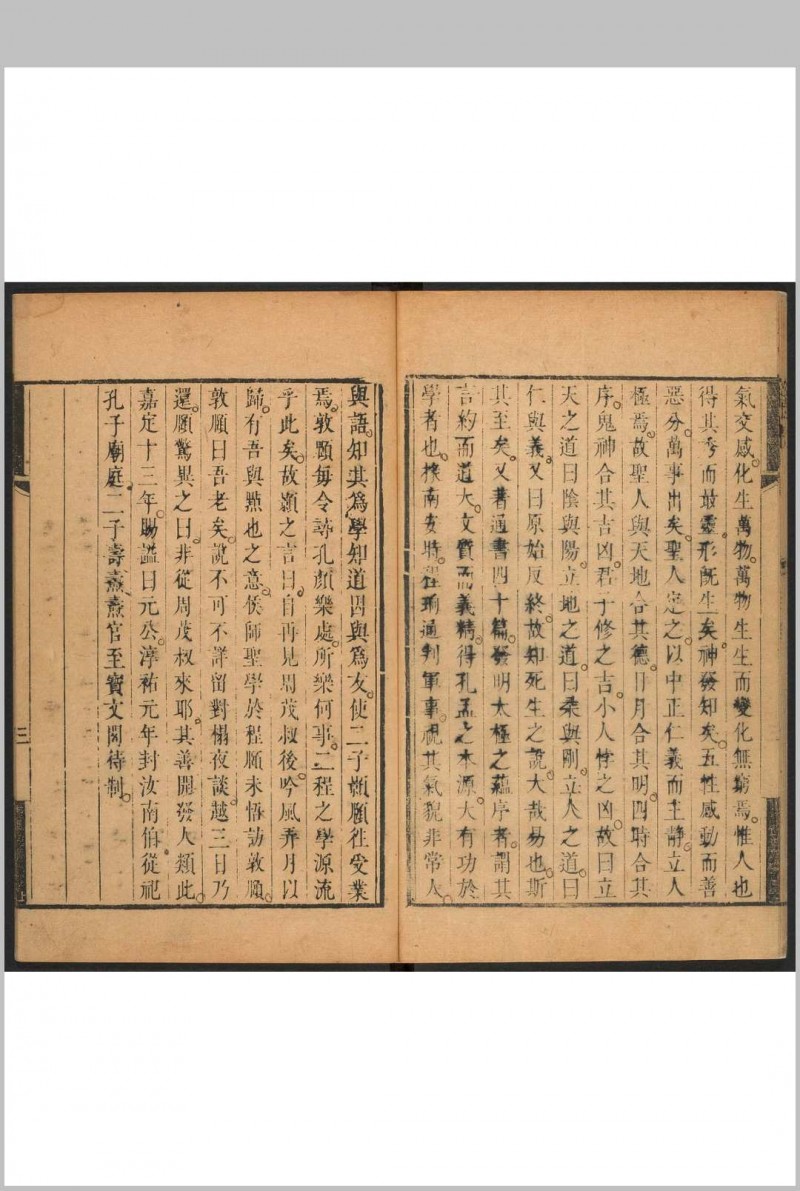 氣交感化生萬物萬物生生而變化無窮焉惟人也
得其秀而最靈形既生矣神發知矣五性感動而善
惡分萬事出矣聖人定之以中正仁義而主靜立人
極焉故聖人與天地合其德日月合其明四時合其
序鬼神合其吉凶君子修之吉小人悖之凶故曰立
天之道曰陰與陽立地之道曰柔與剛立人之道曰
仁與義又曰原始反終故知死生之說大哉易也斯
其至矣又著通書四十篇發明太極之蘊序者謂其
言約而道大文質而義精得孔孟之本源大有功於
學者也掾南安時程珦通判軍事視其氣貌非常人
與語知其爲學知道因與爲友使二子顥頤往受業
焉敦頤每令尋孔顏樂處所樂何事二程之學源流
乎此矣故顥之言曰自再見周茂叔後吟風弄月以
歸有吾與點也之意侯師聖學於程頤未悟訪敦頤
敦頤曰吾老矣說不可不詳留對榻夜談越三日乃
還頤驚異之曰非從周茂叔來耶其善開發人類此
嘉定十三年賜謚曰元公淳祐元年封汝南伯從祀
孔子廟庭二子壽燾燾官至寶文閣待制
三